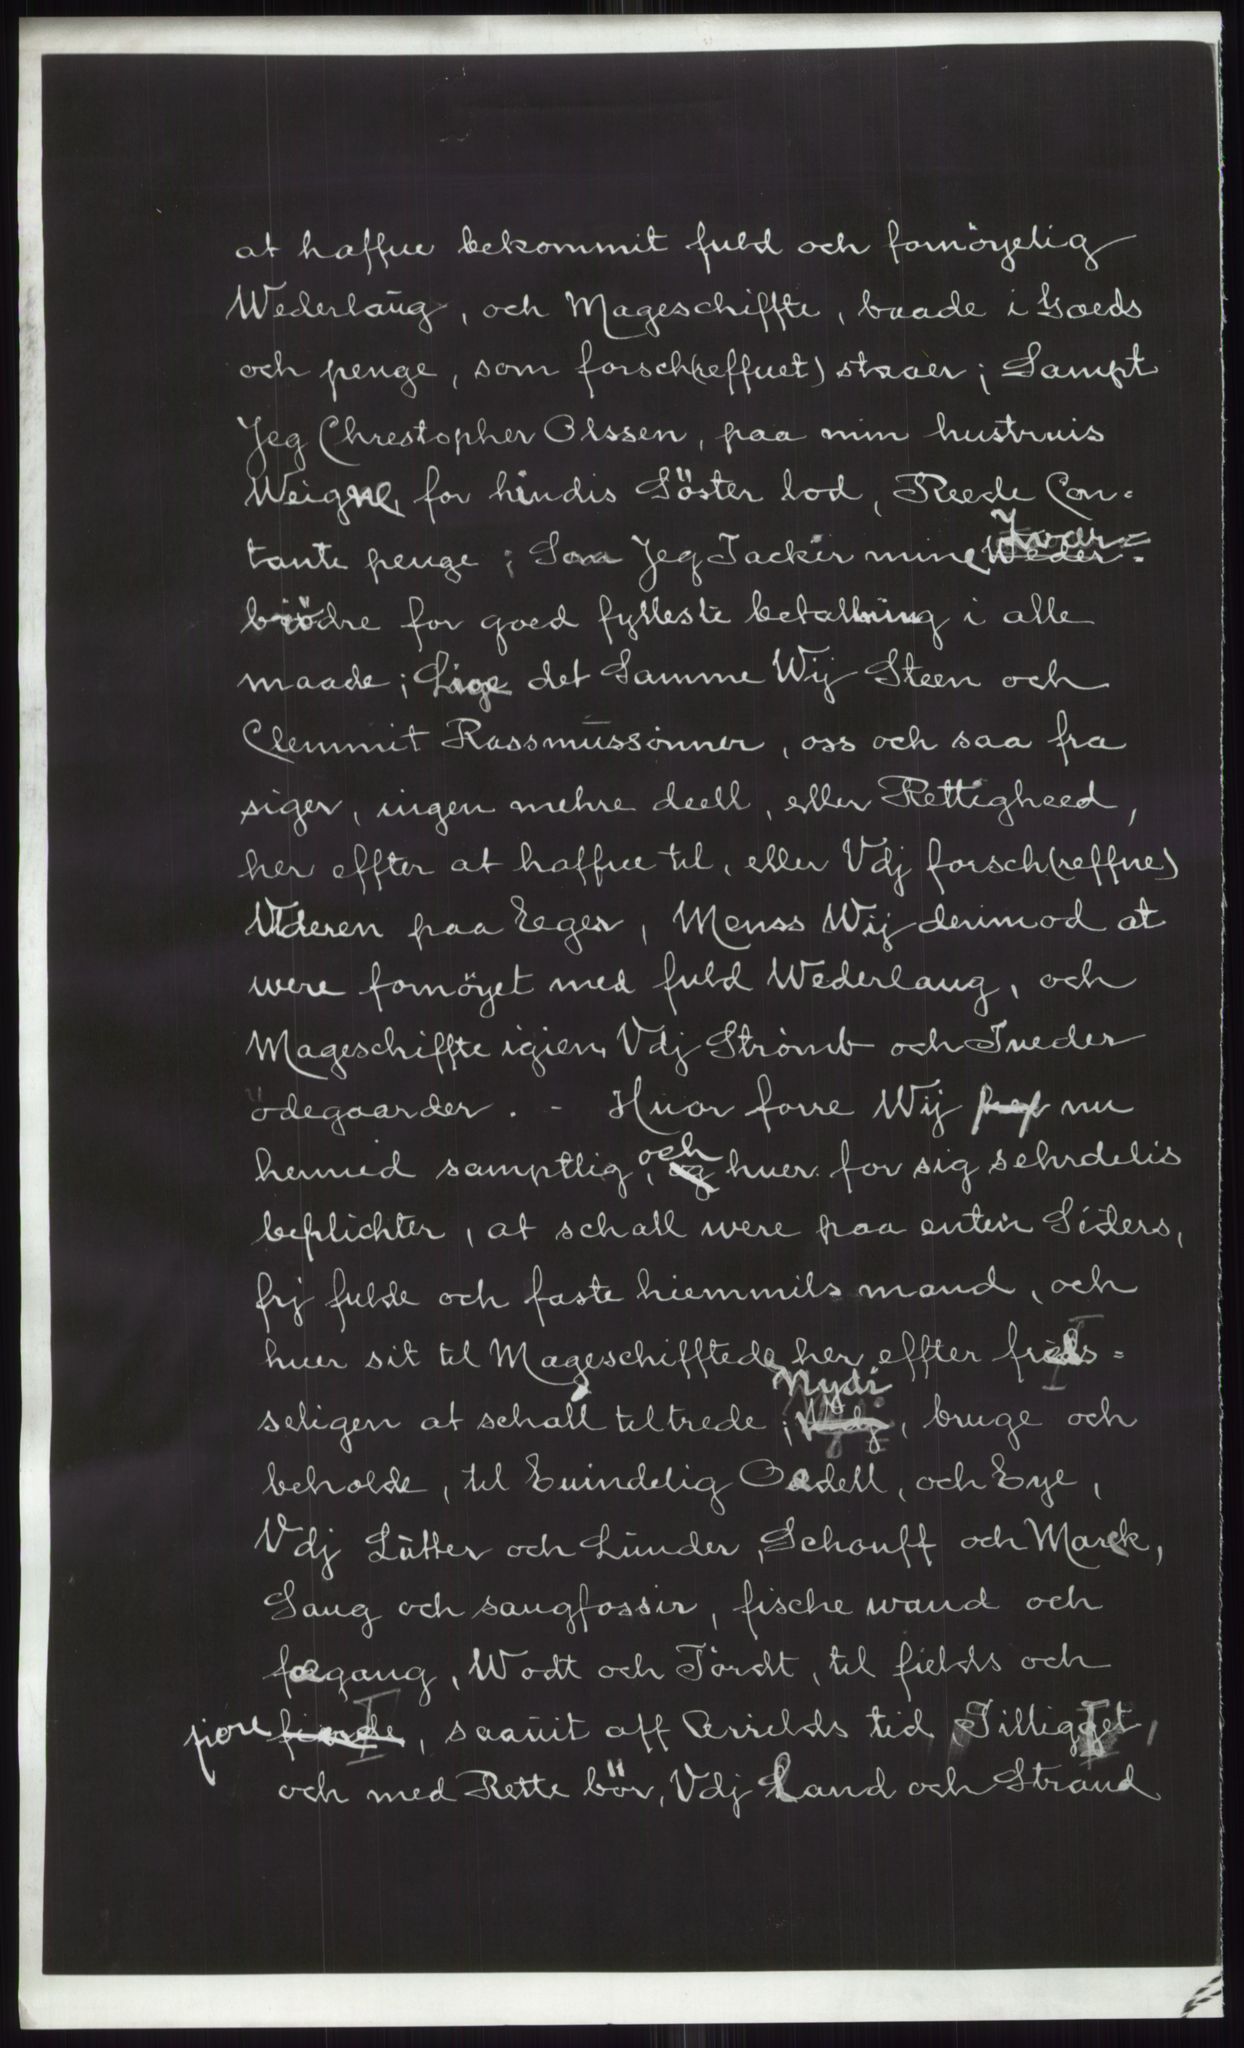 at haffue bekommit fuld och fornöyelig
Wederlaŭg, och Mageschiffte, baade i Goeds
och penge, som forsch(reffuet) staaer; Sampt
Jeg Chrestopher Olssen, paa min hustruis
Weigne, for hindis Söster lod, Reede Con-
tante penge; Som Jeg Tackir mine Swar=
brödre for goed fylleste betalning i alle
maade; Lige det Samme Wij Steen och
Clemmit Rassmŭssønner, oss och saa fra
siger, ingen mehre deell, eller Rettigheed,
her effter at haffue til, eller Vdj forsch(reffne)
Videren paa Eeger, Menss Wij derimod at
were fornöyet med fuld Wederlaug, och
Mageschiffte igien, Vdj Strömb och Tueder
ödegaarder. - Huor forre Wij nu
hermed samptlig, och huer for sig sehrdelis
beplichter, at schall were paa enten Síders,
frj fulde och faste hiemmils mand, och
huer sit til Mageschifftede her effter frids=
seligen at schall tiltrede; Nydi, bruge och
beholde, til Euindelig Odell, och Eye,
Vdj Lŭtter och Lŭnder, Schouff och Marck,
Saug och saugfossir, fische wand och
fægang, Wodt och Tördt, til fields och
fiere, saauit aff Arrields tid Tilligget,
och med Rette bör, Vdj Land och Strand